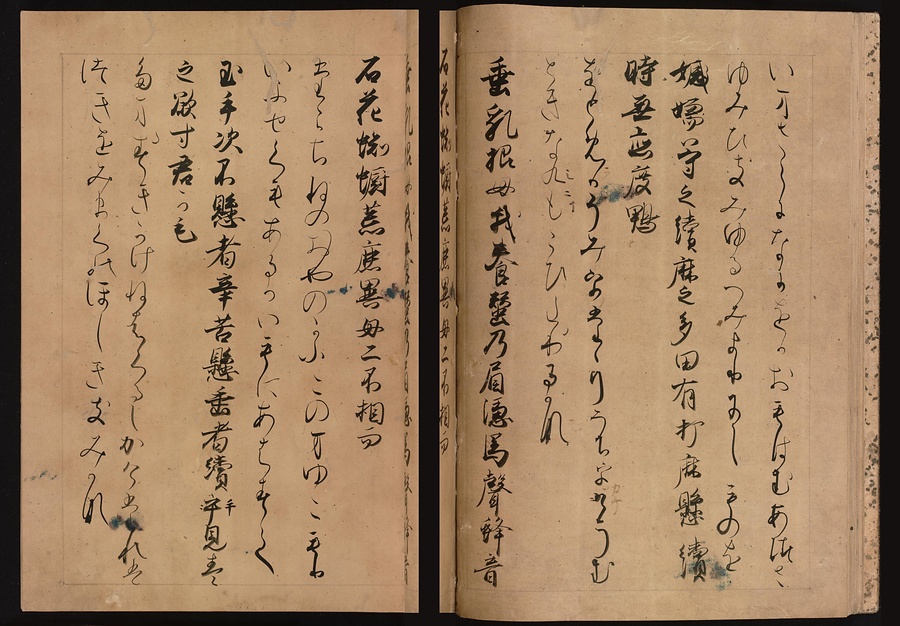 いまさらになにをかおもはむあつさ
ゆみひきみゆるへみよりにしものを
娘嬬等之續麻之多田有打麻懸續
時無恋度鴨
をとめらかうみをのたゝりうちそかけうむ
ときなくもこひわたるかも
垂乳根母我養蚕乃眉隠馬聲蜂音
石花蜘蟵荒鹿異母二不相而
たらちねのおやのかふこのまゆこもり
いふせくもあるかいもにあはすて
玉手次不懸者辛苦懸垂者續手見巻
之欲寸君可毛
たまたすきかけねはくるしかけたれは
つきてみまくのほしききみかも